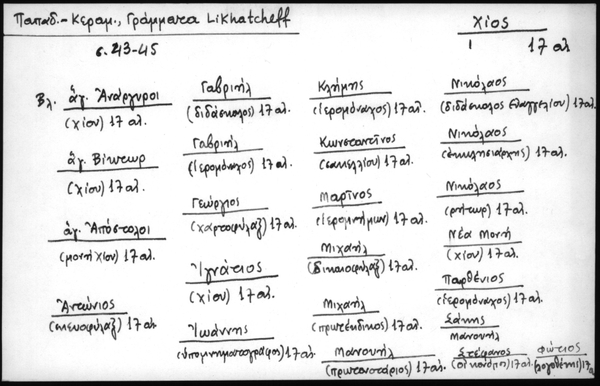 Παπαδ.-Κεραμ., Γράμματα Likhatcheff
Χίος
σ. 23-45
17 αι.
Βλ. ἅγ. Ἀνάργυροι
(Χίου) 17 αι.
ἅγ. Βίκτωρ
(Χίου) 17 αι.
ἁγ. Ἀπόστολοι
(μονή Χίου) 17 αι.
Ἀντώνιος
(σκευοφύλαξ) 17 αι.
Γαβριήλ
(διδάσκαλος) 17 αι.
Γαβριήλ
(ἱερομόναχος) 17 αι.
Γεώργιος
(χαρτοφύλαξ) 17 αι.
Ἰγνάτιος
(Χίου) 17 αι.
Ἰωάννης
(ὑπομνηματογράφος) 17 αι.
Κλήμης
(ἱερομόναχος) 17 αι.
Κωνσταντῖνος
(σακελλίου) 17 αι.
Μαρῖνος
(ἱερομνήμων) 17 αι.
Μιχαήλ
(δικαιοφύλαξ) 17 αι.
Μιχαήλ
(πρωτέκδικος) 17 αι.
Μανουήλ
(πρωτονοτάριος) 17 αι.
Νικόλαος
(διδάσκαλος Εὐαγγελίου) 17 αι.
Νικόλαος
(ἐκκλησιάρχης) 17 αι.
Νικόλαος
(ρήτωρ) 17 αι.
Νέα Μονή
(Χίου) 17 αι.
Παρθένιος
(ἱερομόναχος) 17 αι.
Μανουήλ
Στέφανος
(οἰκονόμος) 17 αι.
Φώτιος
(λογοθέτης) 17 α